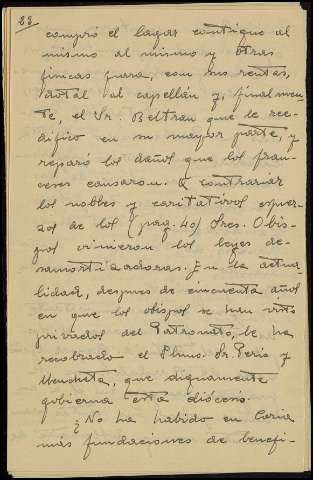 33
compró el lagar contiguo al
mismo al mismo y otras
fincas para, con sus rentas,
dotal al capellán y, finalmen-
te, el Sr. Beltran que le ree-
dificó en su mayor parte, y
reparó los daños que los fran-
ceses causaron. A contrariar
los nobles y caritativos esfuer-
zos de los (pag. 40) Sres. Obis-
pos vinieron las leyes de-
samortizadoras. En la actua-
lidad, despues de cincuenta años
en que los obispos se han visto
privados del Patronato, le ha
recobrado el Ilmo. Sr. Peris y
Mencheta, que dignamente
gobierna esta diócesis.
¿No ha habido en Coria
más fundaciones de benefi-